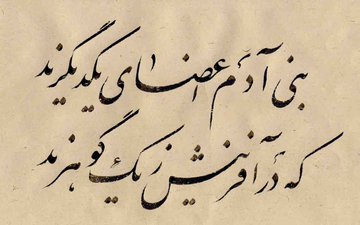 بنی آدم اعضای یکدیگرند
که در آفرینش ز یک گوهرند